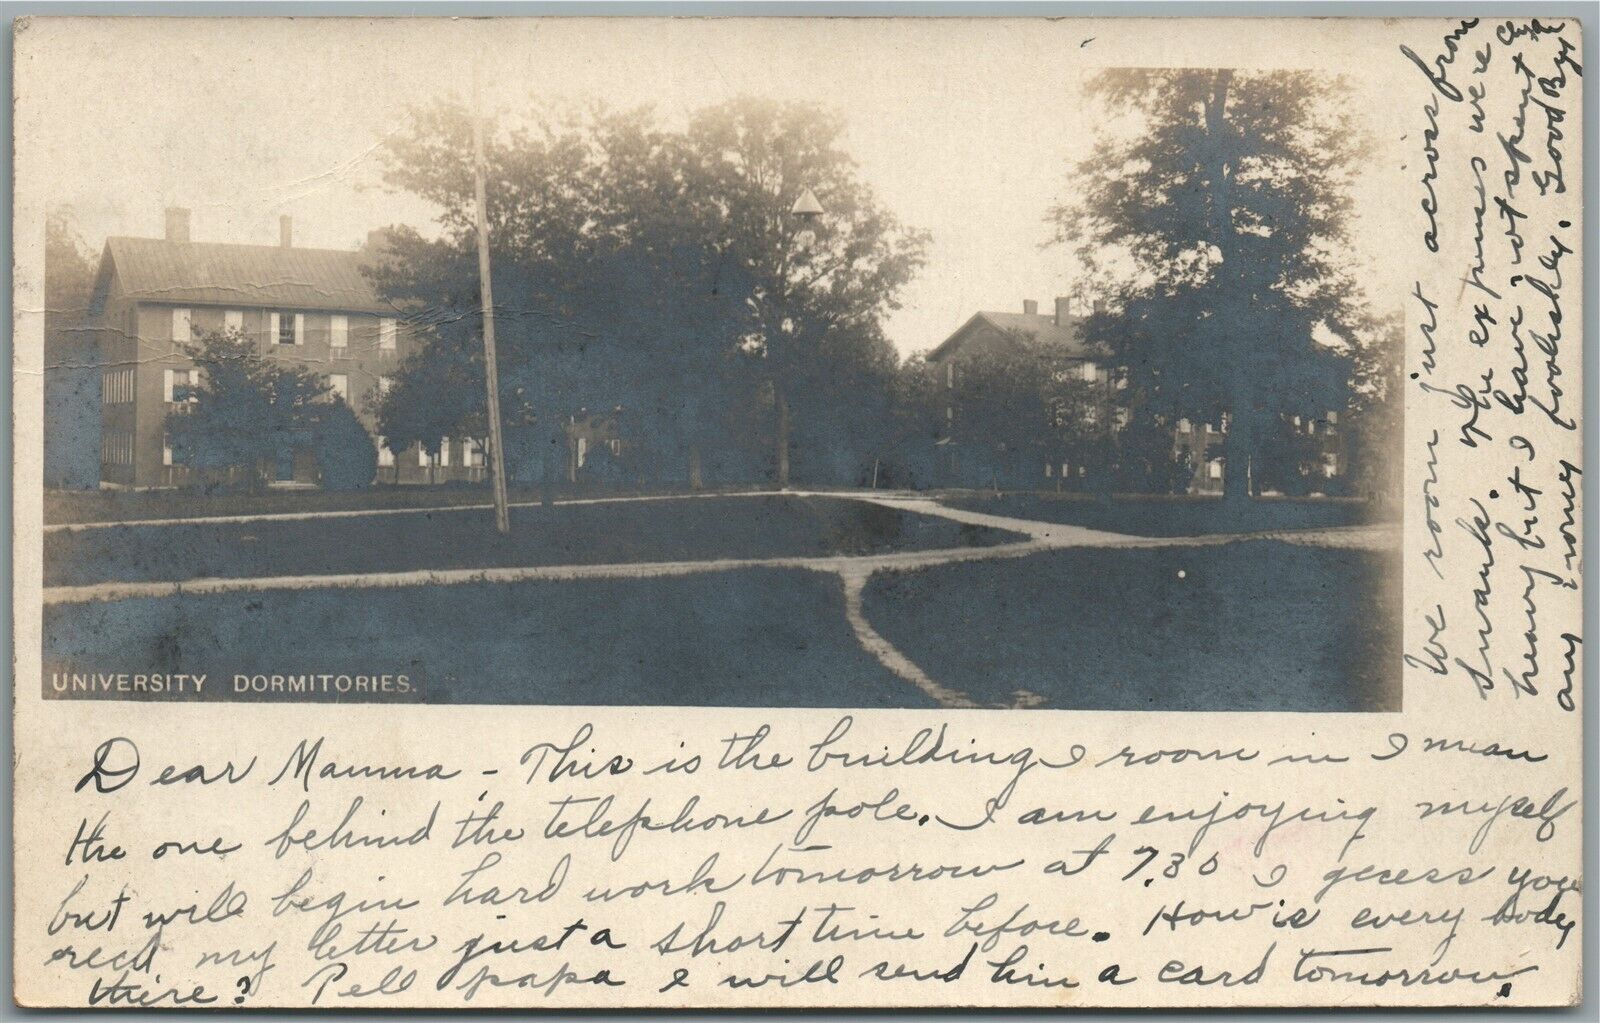 UNIVERSITY DORMITORIES.
Dear Mamma - This is the building I room in I mean
the one behind the telephone pole. I am enjoying myself
but will begin hard work tomorrow at 7.30 I guess you
recd my letter just a short time before. How is every body
there? Tell papa I will send him a card tomorrow.
We room just across from
Swank. The expenses were
heavy but I have not spent
any money foolishly. Good Bye